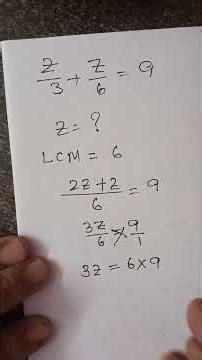 z/3 + z/6 = 9
z = ?
LCM = 6
2z+z/6 = 9
3z/6 = 9/1
3z = 6×9